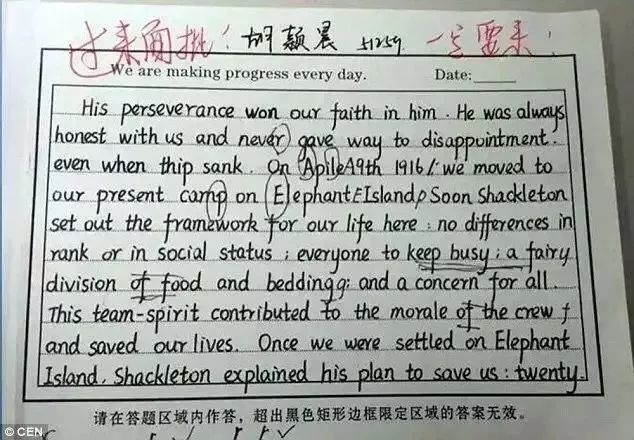 过来面批！胡颖晨 51259 一定要来！
We are making progress every day. Date:
His perseverance won our faith in him. He was always
honest with us and never gave way to disappointment.
even when thip sank. On ApileA9th 1916/: we moved to
our present camp on ElephantEIsland, Soon Shackleton
set out the framework for our life here : no differences in
rank or in social status ; everyone to keep busy ; a fairy
division of food and beddingg; and a concern for all.
This team-spirit contributed to the morale of the crew f
and saved our lives. Once we were settled on Elephant
Island, Shackleton explained his plan to save us : twenty
请在答题区域内作答，超出黑色矩形边框限定区域的答案无效。
© CEN